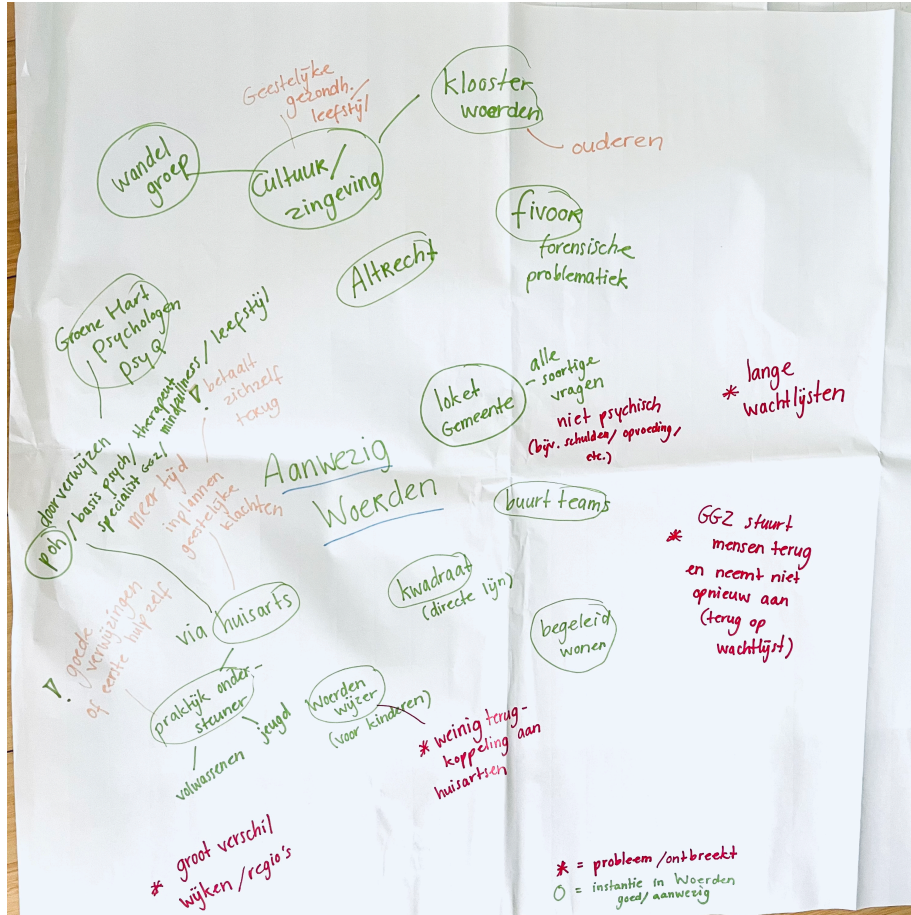 Geestelijke
gezondh./
leefstijl
klooster
woerden
ouderen
wandel
groep
Cultuur/
zingeving
fivoor
forensische
problematiek
Altrecht
Groene Hart
psychologen
psyQ
doorverwijzen
poh/basis psych/therapeut
specialist GGZ/mindfullness/leefstijl
betaalt
zichzelf
terug
meer tijd
inplannen
geestelijke
klachten
loket
Gemeente
- alle
soortige
vragen
niet psychisch
(bijv. schulden/opvoeding/
etc.)
* lange
wachtlijsten
Aanwezig
Woerden
buurt teams
* GGZ stuurt
mensen terug
en neemt niet
opnieuw aan
(terug op
wachtlijst)
kwadraat
(directe lijn)
begeleid
wonen
via huisarts
goede
verwijzingen
of eerste hulp zelf
praktijk onder-
steuner
volwassenen
jeugd
Woerden
wijzer
(voor kinderen)
* weinig terug-
koppeling aan
huisartsen
* groot verschil
wijken/regio's
* = probleem/ontbreekt
O = instantie in Woerden
goed/aanwezig